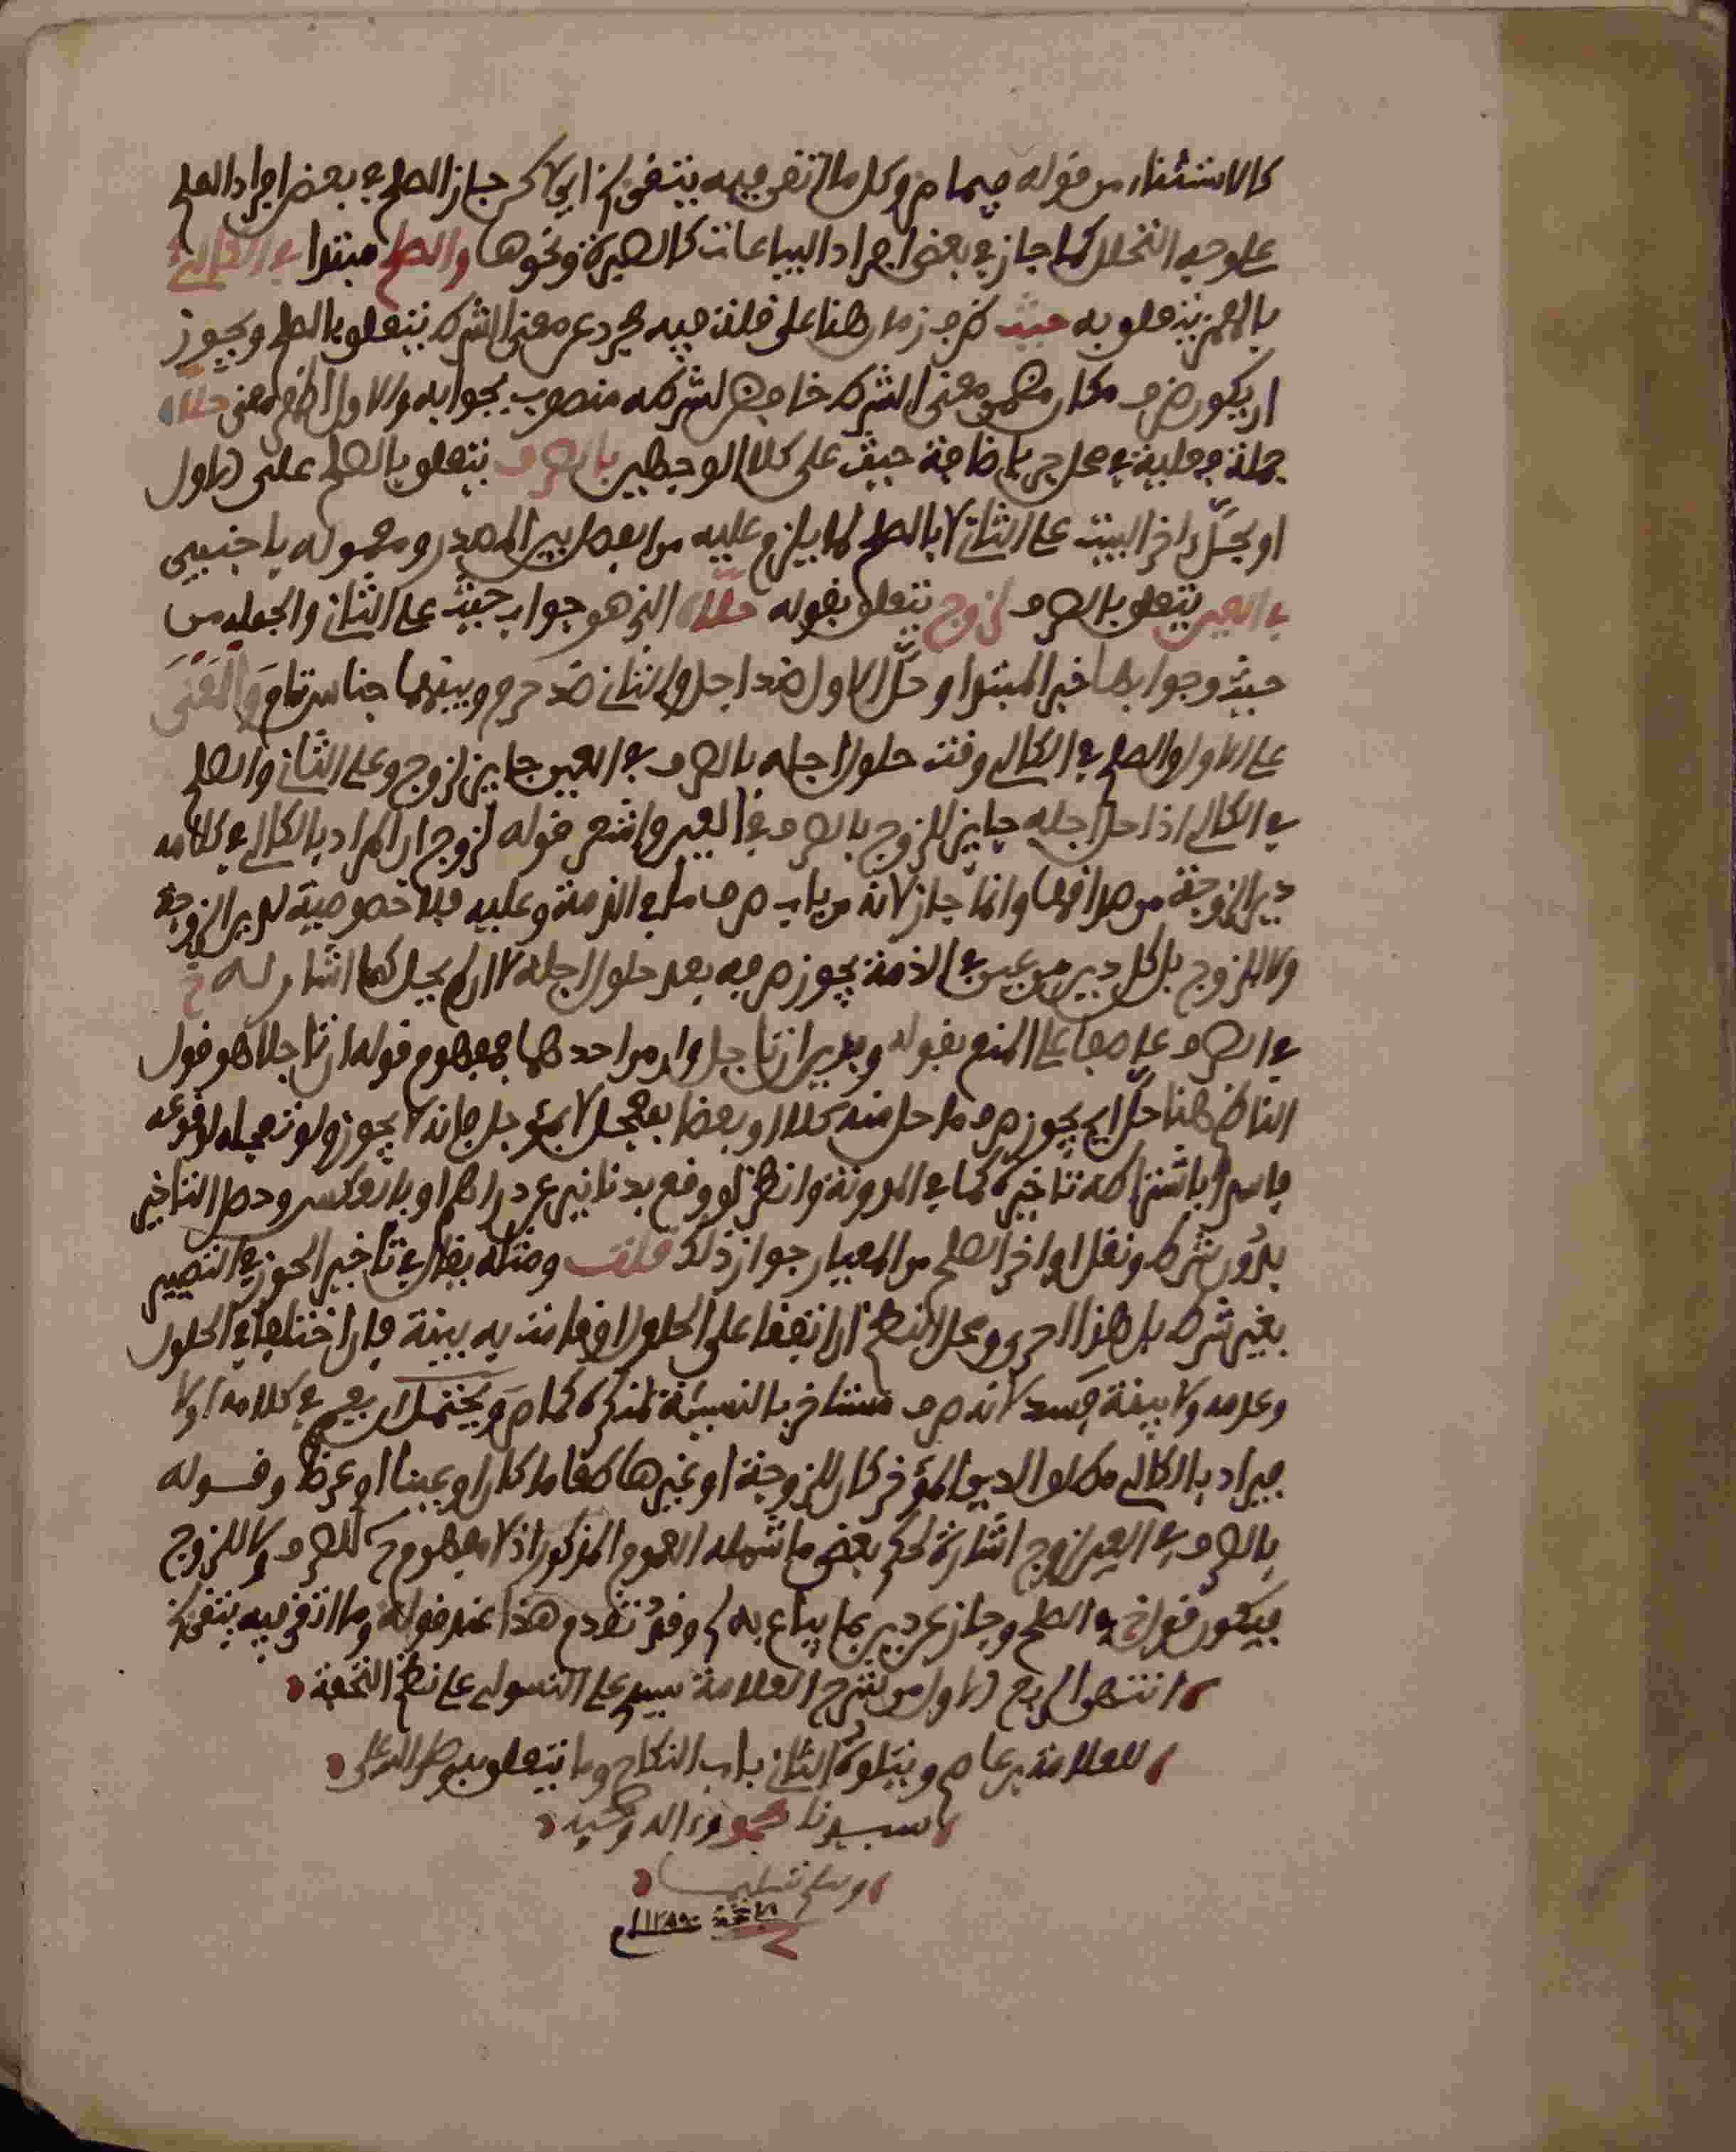 كالاستثناء من قوله فيما مر وكل ما اتفق فيه يتقى الخ أي لاكن جاز الصلح في بعض افراد الصلح
على وجه التحلل كما جاز في بعض افراد البياعات كالصبرة ونحوها والصلح مبتدا في الكالئ
بالهمز يتعلق به حيث ظرف زمان هنا على قلة فيه مجرد عن معنى الشرط يتعلق بالصلح ويجوز
ان يكون ظرف مكان مضمن معنى الشرط خافض لشرطه منصوب بجوابه والاول اظهر معنى حلا
جملة فعلية في محل جر باضافة حيث على كلا الوجهين بالصرف يتعلق بالصلح على الاول
او بحل اخر البيت على الثاني لا بالصلح لما يلزم عليه من الفصل بين المصدر ومعموله باجنبي
في العين يتعلق بالصرف لزوج يتعلق بقوله حلا الذي هو جواب حيث على الثاني والجملة من
حيث وجوابها خبر المبتدا وحل الاول ضد اجل والثاني ضد حرم وبينهما جناس تام والمعنى
على الاول والصلح في الكالئ وقت حلول اجله بالصرف في العين جايز لزوج وعلى الثاني والصلح
في الكالئ اذا حل اجله جايز للزوج بالصرف في العين واشعر قوله لزوج ان المراد بالكالئ في كلامه
دين الزوجة من صداقها وانما جاز لانه من باب صرف ما في الذمة وعليه فلا خصوصية لدين الزوجة
ولا للزوج بل كل دين من عين في الذمة يجوز صرفه بعد حلول اجله لا ان لم يحل كما اشار له خ
في الصرف عاطفا على المنع بقوله وبدين ان تاجل وان من احدهما فمفهوم قوله ان تاجل هو قول
الناظم هنا حل اي يجوز صرف ما حل منه كلا او بعضا بمعجل لا بمؤجل فانه لا يجوز ولو تعجله لوقوعه
فاسدا باشتراطه تاخيره كما في المدونة وانظر لو وقع بدنانير عن دراهم او بالعكس وحصل التاخير
بدون شرط ونقل اواخر الصلح من المعيار جواز ذلك قلت ومثله يقال في تاخير الحوز في التصيير
بغير شرط بل هذا احرى ومحل النظر ان اتفقا على الحلول او قامت به بينة فان اختلفا في الحلول
وعدمه ولا بينة فسد لانه صرف مستاخر بالنسيئة لمنكره كما مر ويحتمل ان يعمم في كلامه اولا
فيراد بالكالئ مطلق الدين المؤخر كان للزوجة او غيرها طعاما كان او عينا او عرضا وقوله
بالصرف في العين لزوج اشارة لحكم بعض ما شمله العموم المذكور اذ لا مفهوم ح للصرف ولا للزوج
فيكون كقول خ في الصلح وجاز عن دين بما يباع به الخ وقد تقدم هذا عند قوله وما اتفق فيه يتقى الخ
انتهى الربع الاول من شرح العلامة سيدي علي التسولي على نظم التحفة
للعلامة بن عاصم ويتلوه الثاني باب النكاح وما يتعلق به وصلى الله على
سيدنا محمد وءاله وصحبه
وسلم تسليما